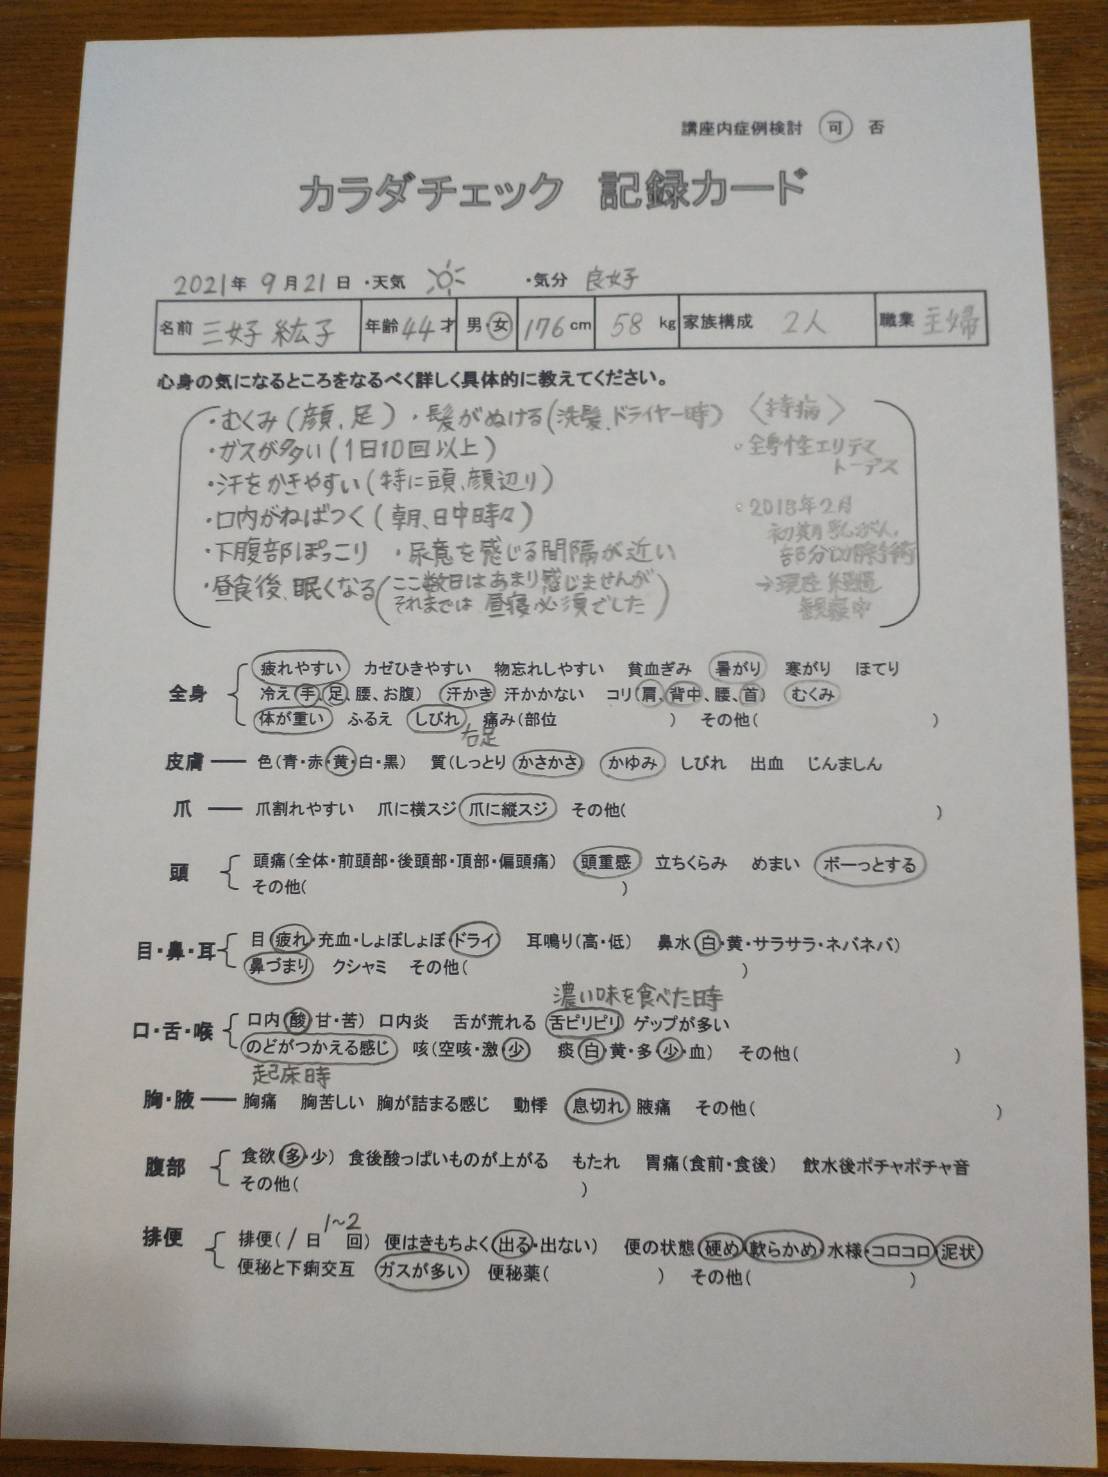 講座内症例検討 可 否
カラダチェック 記録カード
2021年 9月21日 ・天気 ・気分 良好
名前 三好 紘子 年齢44才 男・女 176cm 58kg 家族構成 2人 職業 主婦
心身の気になるところをなるべく詳しく具体的に教えてください。
・むくみ(顔、足) ・髪がぬける(洗髪、ドライヤー時) 〈持病〉
・ガスが多い(1日10回以上) 。全身性エリテマ
トーデス
・汗をかきやすい(特に頭、顔辺り)
・口内がねばつく(朝、日中時々) 。2018年2月
初期乳がん、
・下腹部ぽっこり ・尿意を感じる間隔が近い 部分切除手術
・昼食後、眠くなる(ここ数日はあまり感じませんが →現在 経過
それまでは 昼寝必須でした) 観察中
全身 疲れやすい カゼひきやすい 物忘れしやすい 貧血ぎみ 暑がり 寒がり ほてり
冷え(手、足、腰、お腹) 汗かき 汗かかない コリ(肩、背中、腰、首) むくみ
体が重い ふるえ しびれ 痛み(部位 ) その他( )
右足
皮膚 ― 色(青・赤・黄・白・黒) 質(しっとり・かさかさ) かゆみ しびれ 出血 じんましん
爪 ― 爪割れやすい 爪に横スジ 爪に縦スジ その他( )
頭 頭痛(全体・前頭部・後頭部・頂部・偏頭痛) 頭重感 立ちくらみ めまい ボーっとする
その他( )
目・鼻・耳 目(疲れ・充血・しょぼしょぼ・ドライ) 耳鳴り(高・低) 鼻水(白・黄・サラサラ・ネバネバ)
鼻づまり クシャミ その他( )
濃い味を食べた時
口・舌・喉 口内(酸・甘・苦) 口内炎 舌が荒れる 舌ピリピリ ゲップが多い
のどがつかえる感じ 咳(空咳・激・少) 痰(白・黄・多・少・血) その他( )
起床時
胸・腋 ― 胸痛 胸苦しい 胸が詰まる感じ 動悸 息切れ 腋痛 その他( )
腹部 食欲(多・少) 食後酸っぱいものが上がる もたれ 胃痛(食前・食後) 飲水後ポチャポチャ音
その他( )
排便 排便(1日 1~2 回) 便はきもちよく(出る・出ない) 便の状態(硬め・軟らかめ・水様・コロコロ・泥状)
便秘と下痢交互 ガスが多い 便秘薬( ) その他( )